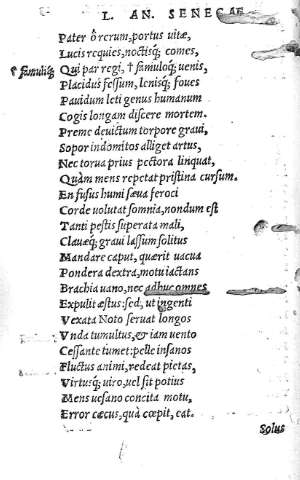 L. AN. SENECAE
Pater ô rerum, portus vitæ,
Lucis requies, noctisq; comes,
† famulisq; Qui par regi, † famuloq; uenis,
Placidus fessum, lenisq; foues
Pauidum leti genus humanum
Cogis longam discere mortem.
Preme deuictum torpore graui,
Sopor indomitos alliget artus,
Nec torua prius pectora linquat,
Quàm mens repetat pristina cursum.
En fusus humi sæua feroci
Corde uolutat somnia, nondum est
Tanti pestis superata mali,
Clauæq; graui lassum solitus
Mandare caput, quærit uacua
Pondera dextra, motu iactans
Brachia uano, nec adhuc omnes
Expulit æstus: sed, ut ingenti
Vexata Noto seruat longos
Vnda tumultus, & iam uento
Cessante tumet: pelle insanos
Fluctus animi, redeat pietas,
Virtusq; uiro, uel sit potius
Mens uesano concita motu,
Error cæcus, quà cœpit, eat.
Solus